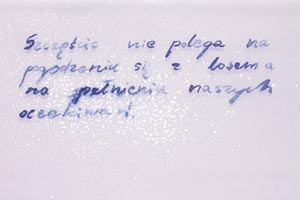 Szczęście nie polega na
pogodzeniu się z losem a
na pełnieniu naszych
oczekiwań!